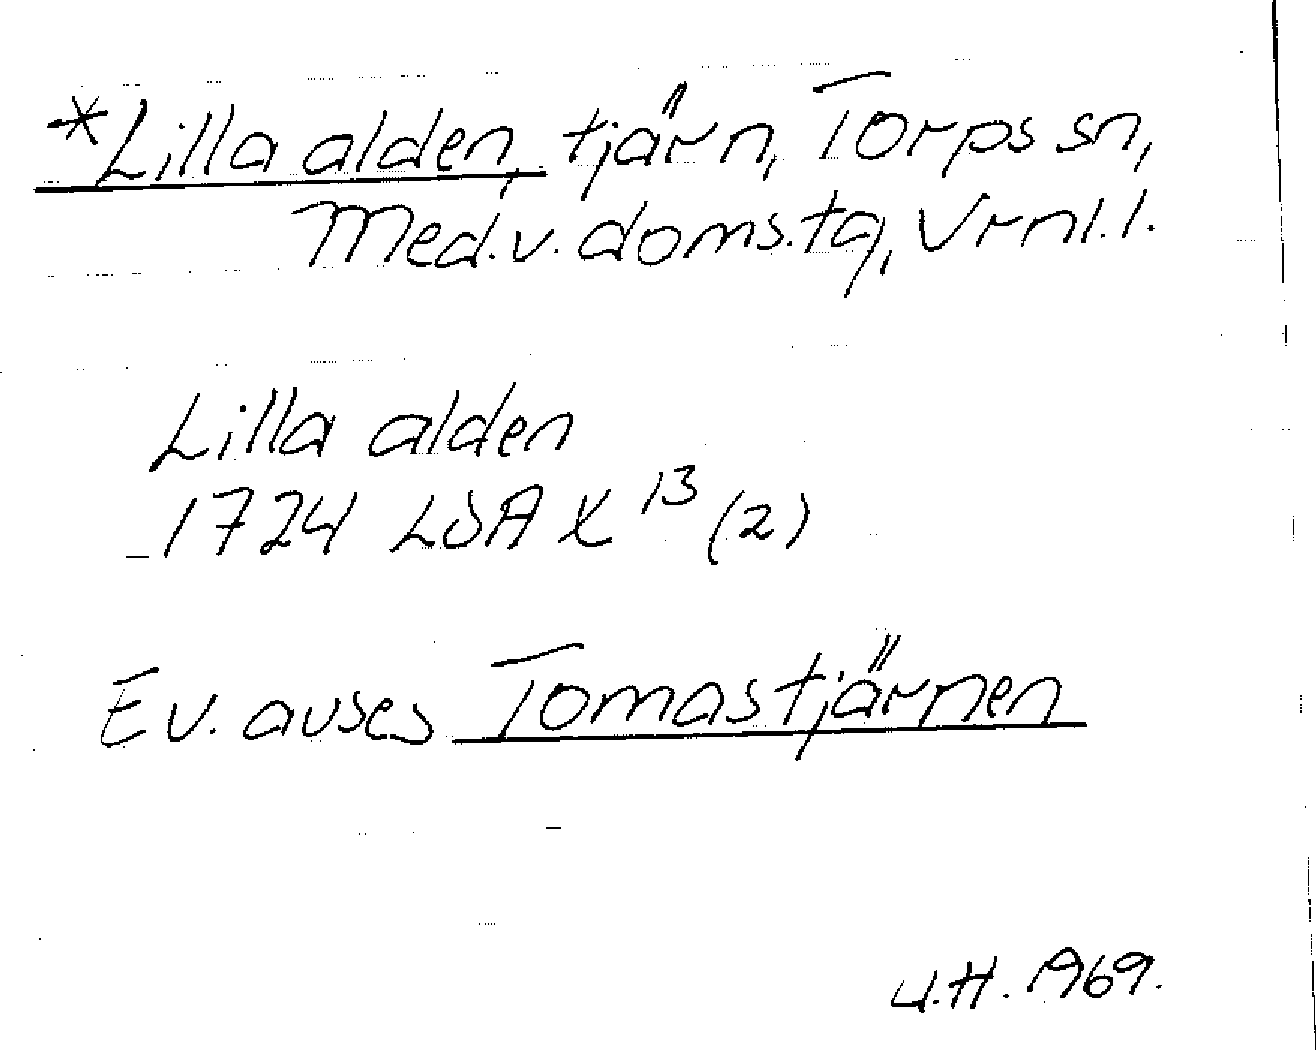 *Lilla alden, tjärn, Torps sn,
Med.v.doms.tg, Vrnl.l.
Lilla alden
1724 LSA X 13 (2)
Ev. avses Tomastjärnen
U.H. 1969.